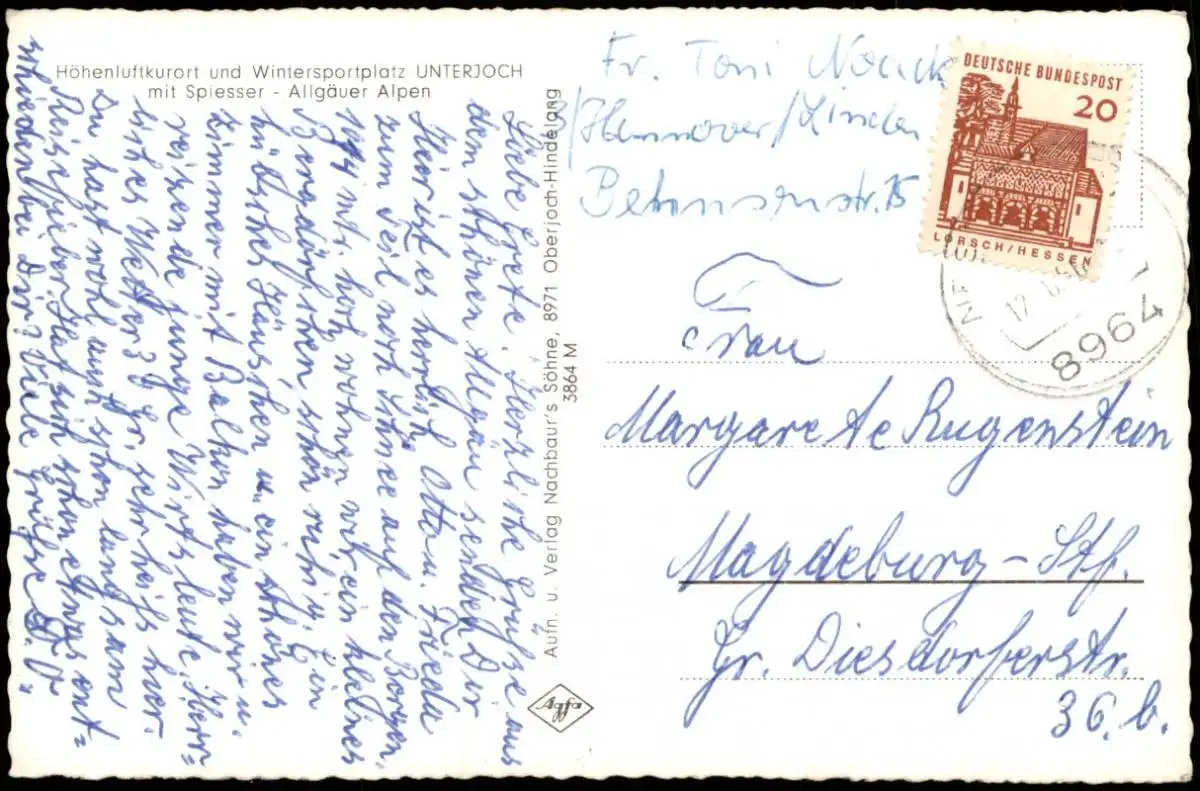 Höhenluftkurort und Wintersportplatz UNTERJOCH
mit Spiesser - Allgäuer Alpen
Liebe Grete. Herzliche Grüße aus
dem schönen Allgäu sendet Dir
Hier ist es herrlich Otto u. Frieda
zum Teil noch Schnee auf den Bergen
1194 mt. hoch wohnen wir ein kleines
Bergdörfchen schön ruhig. Ein
hübsches Häuschen u. ein schönes
Zimmer mit Balkon haben wir u.
reizende junge Wirtsleute. Herr=
liches Wetter gr. sehr heiß hier.
Du hast wohl auch schon langsam
Reisefieber. Hat sich schon etwas ent=
schieden bei Dir? Viele Grüße D. O.
Aufn. u. Verlag Nachbaur's Söhne, 8971 Oberjoch-Hindelang
3864 M
Agfa
Fr. Toni Noack
3/Hannover/Linden
Behnsenstr. 15
DEUTSCHE BUNDESPOST
20
LORSCH/HESSEN
8964
Frau
Margarete Rugenstein
Magdeburg-Stf.
Gr. Diesdorferstr.
36. b.